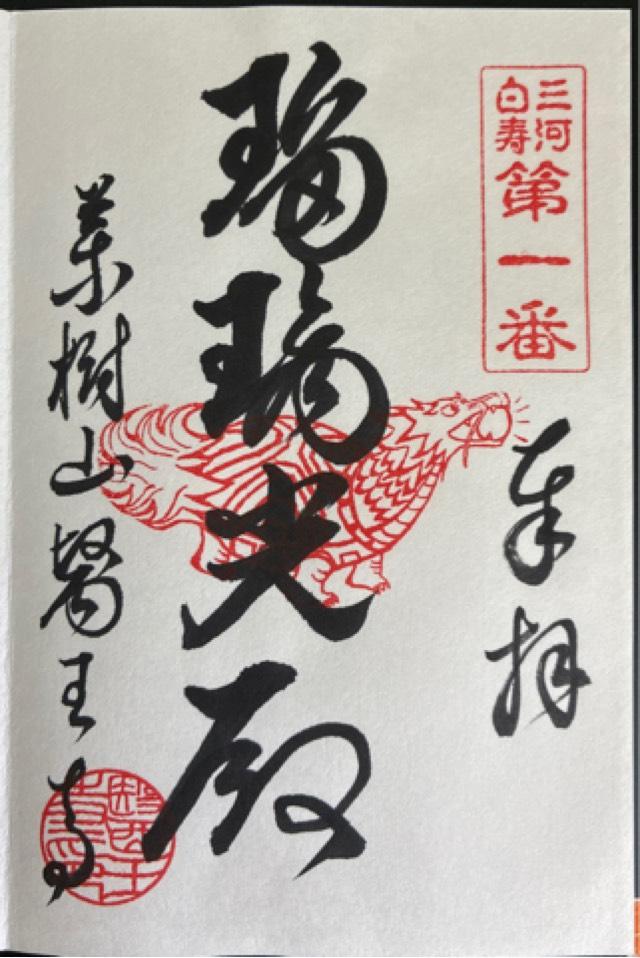 三河
白寿
第一番
奉拝
瑠璃光殿
薬樹山醫王寺